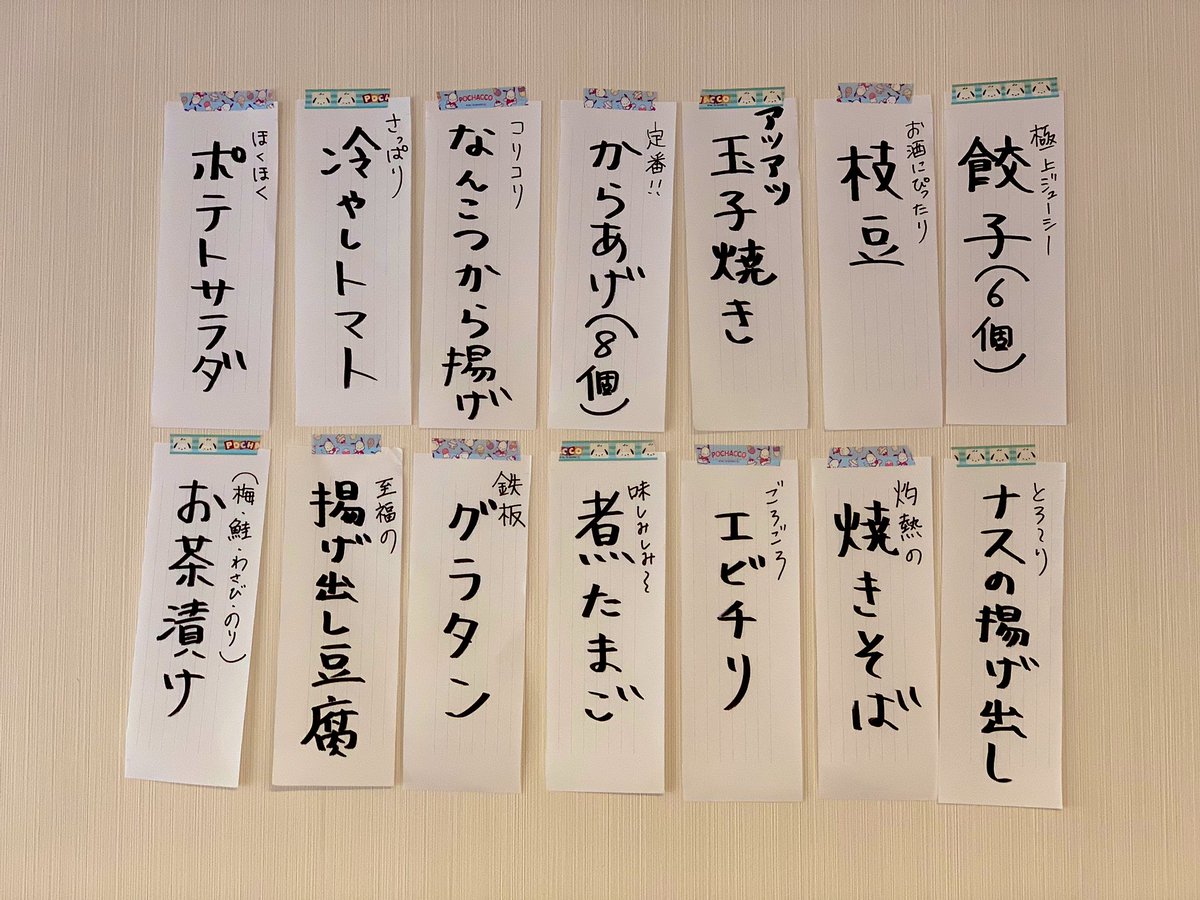 極上ジューシー
餃子(6個)
お酒にぴったり
枝豆
アツアツ
玉子焼き
定番!!
からあげ(8個)
コリコリ
なんこつから揚げ
さっぱり
冷やしトマト
ほくほく
ポテトサラダ
とろ〜り
ナスの揚げ出し
灼熱の
焼きそば
ごろごろ
エビチリ
味しみしみ〜
煮たまご
鉄板
グラタン
至福の
揚げ出し豆腐
(梅・鮭・わさび・のり)
お茶漬け
POCHACCO
POCHACCO